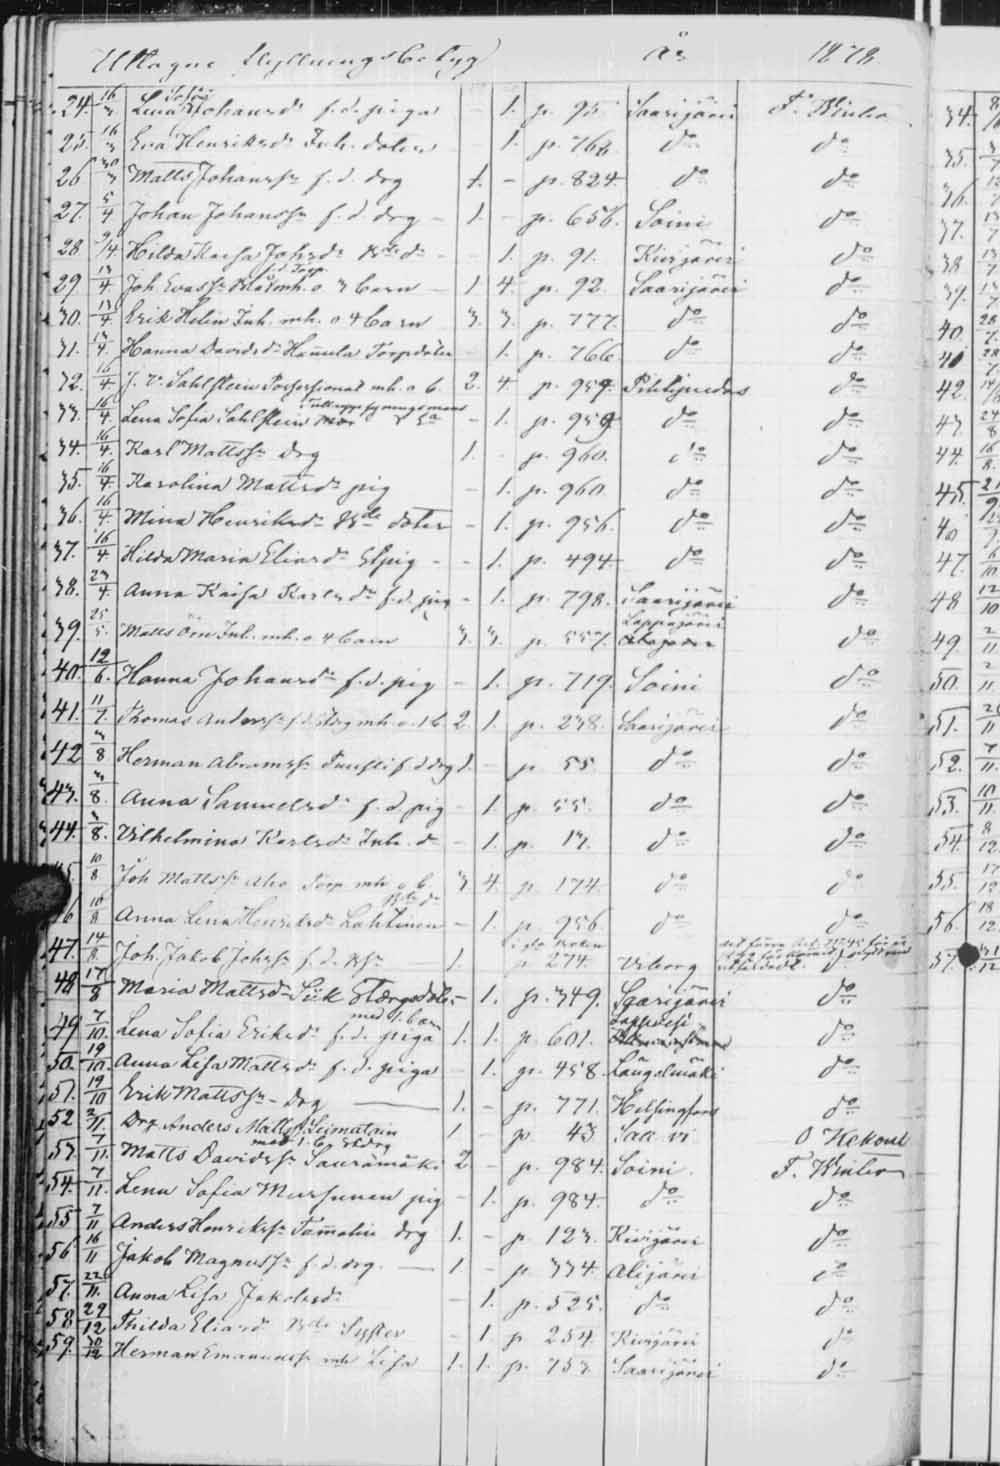 Uttagne Flyttningsbetyg År 1878
24. 16/3 Lena Sofia Johansdr f.d. piga - 1. p. 95. Saarijärvi F. Winter
25. 16/3 Eva Henriksdr Inh. doter - 1. p. 768. do do
26 30/3 Matts Johanss. f.d. drg 1. - p. 824. do do
27. 5/4 Johan Johanss. f.d. drg - 1. - p. 656. Soini do
28 9/4. Hilda Kaisa Johsdr - 1. p. 91. Kivijärvi do
29 13/4. Joh. Evass. f.d. Torp. mh. o 3 barn - 1. 4. p. 92. Saarijärvi do
30. 13/4 Erik Helin Inh. mh. o 4 barn 3. 3. p. 777. do do
31. 13/4. Hanna Davidsdr Hannula Torpdoter - 1. p. 766. do do
32. 16/4. J. V. Sahlstein Professionat mh. o b. 2. 4 p. 959. Pihtipudas do
33. 16/4. Lena Sofia Sahlstein - 1. p. 959 do do
34. 16/4. Karl Mattss. drg 1. - p. 960. do do
35. 16/4. Karolina Mattsdr pig - 1. p. 960 do do
36. 16/4. Mina Henriksdr doter - 1. p. 956. do do
37. 16/4. Hilda Maria Eliasdr pig - - 1. p. 494 do do
38. 23/4. Anna Kaisa Karlsdr f.d. pig - 1. p. 798. Saarijärvi do
39. 25/5. Matts Örn Inh. mh. o 4 barn 3. 3. p. 557. Lappajärvi do
40. 12/6. Hanna Johansdr f.d. pig - 1. p. 719. Soini do
41. 11/7. Thomas Anderss. f.d. drg mh. o. 1 b 2. 1. p. 238. Saarijärvi do
42 3/8 Herman Abramss. f.d. drg 1. - p. 55. do do
43. 3/8. Anna Samuelsdr f.d. pig - 1. p. 55. do do
44. 3/8. Vilhelmina Karlsdr Inh. dr - 1. p. 17. do do
45. 10/8 Joh Mattss. Aho Torp mh o b. 3 4. p. 174. do do
46 10/8 Anna Lena Henriksdr Lahtinen - 1. p. 956 do do
47. 14/8. Joh. Jakob Johss. f.d. 1. p. 274. Viborg
48 17/8 Maria Mattsdr Siik - 1. p. 349. Saarijärvi do
49 7/10. Lena Sofia Eriksdr f.d. piga med 1. barn 1. 1. p. 601. do
50. 19/10. Anna Lisa Mattsdr f.d. piga - 1. p. 458. Längelmäki do
51. 19/10 Erik Mattss. - drg 1. - p. 771. Helsingfors do
52 2/11. Drg Anders Matts. Leimatvin 1 - p. 43 O Kekoni
53. 7/11. Matts Davidss. Saunamäki 2 - p. 984. Soini. F. Winter
54. 7/11. Lena Sofia Mursunen pig - 1. p. 984 do do
55 7/11 Anders Henrikss. Tammelin drg 1. - p. 123. Kivijärvi do
56 16/11 Jakob Magnuss. f.d. drg. 1 - p. 334. Alijärvi do
57. 22/11. Anna Lisa Jakobsdr - 1. p. 525. do do
58. 29/12 Thilda Eliasdr Syster - 1. p. 254. Kivijärvi do
59. 30/12 Herman Emanuelss. mh Lisa 1. 1. p. 753. Saarijärvi do
34.
35.
36.
37.
38
39.
40.
41
42.
43.
44.
45.
46
47.
48
49.
50.
51.
52.
53.
54.
55.
56.
57.